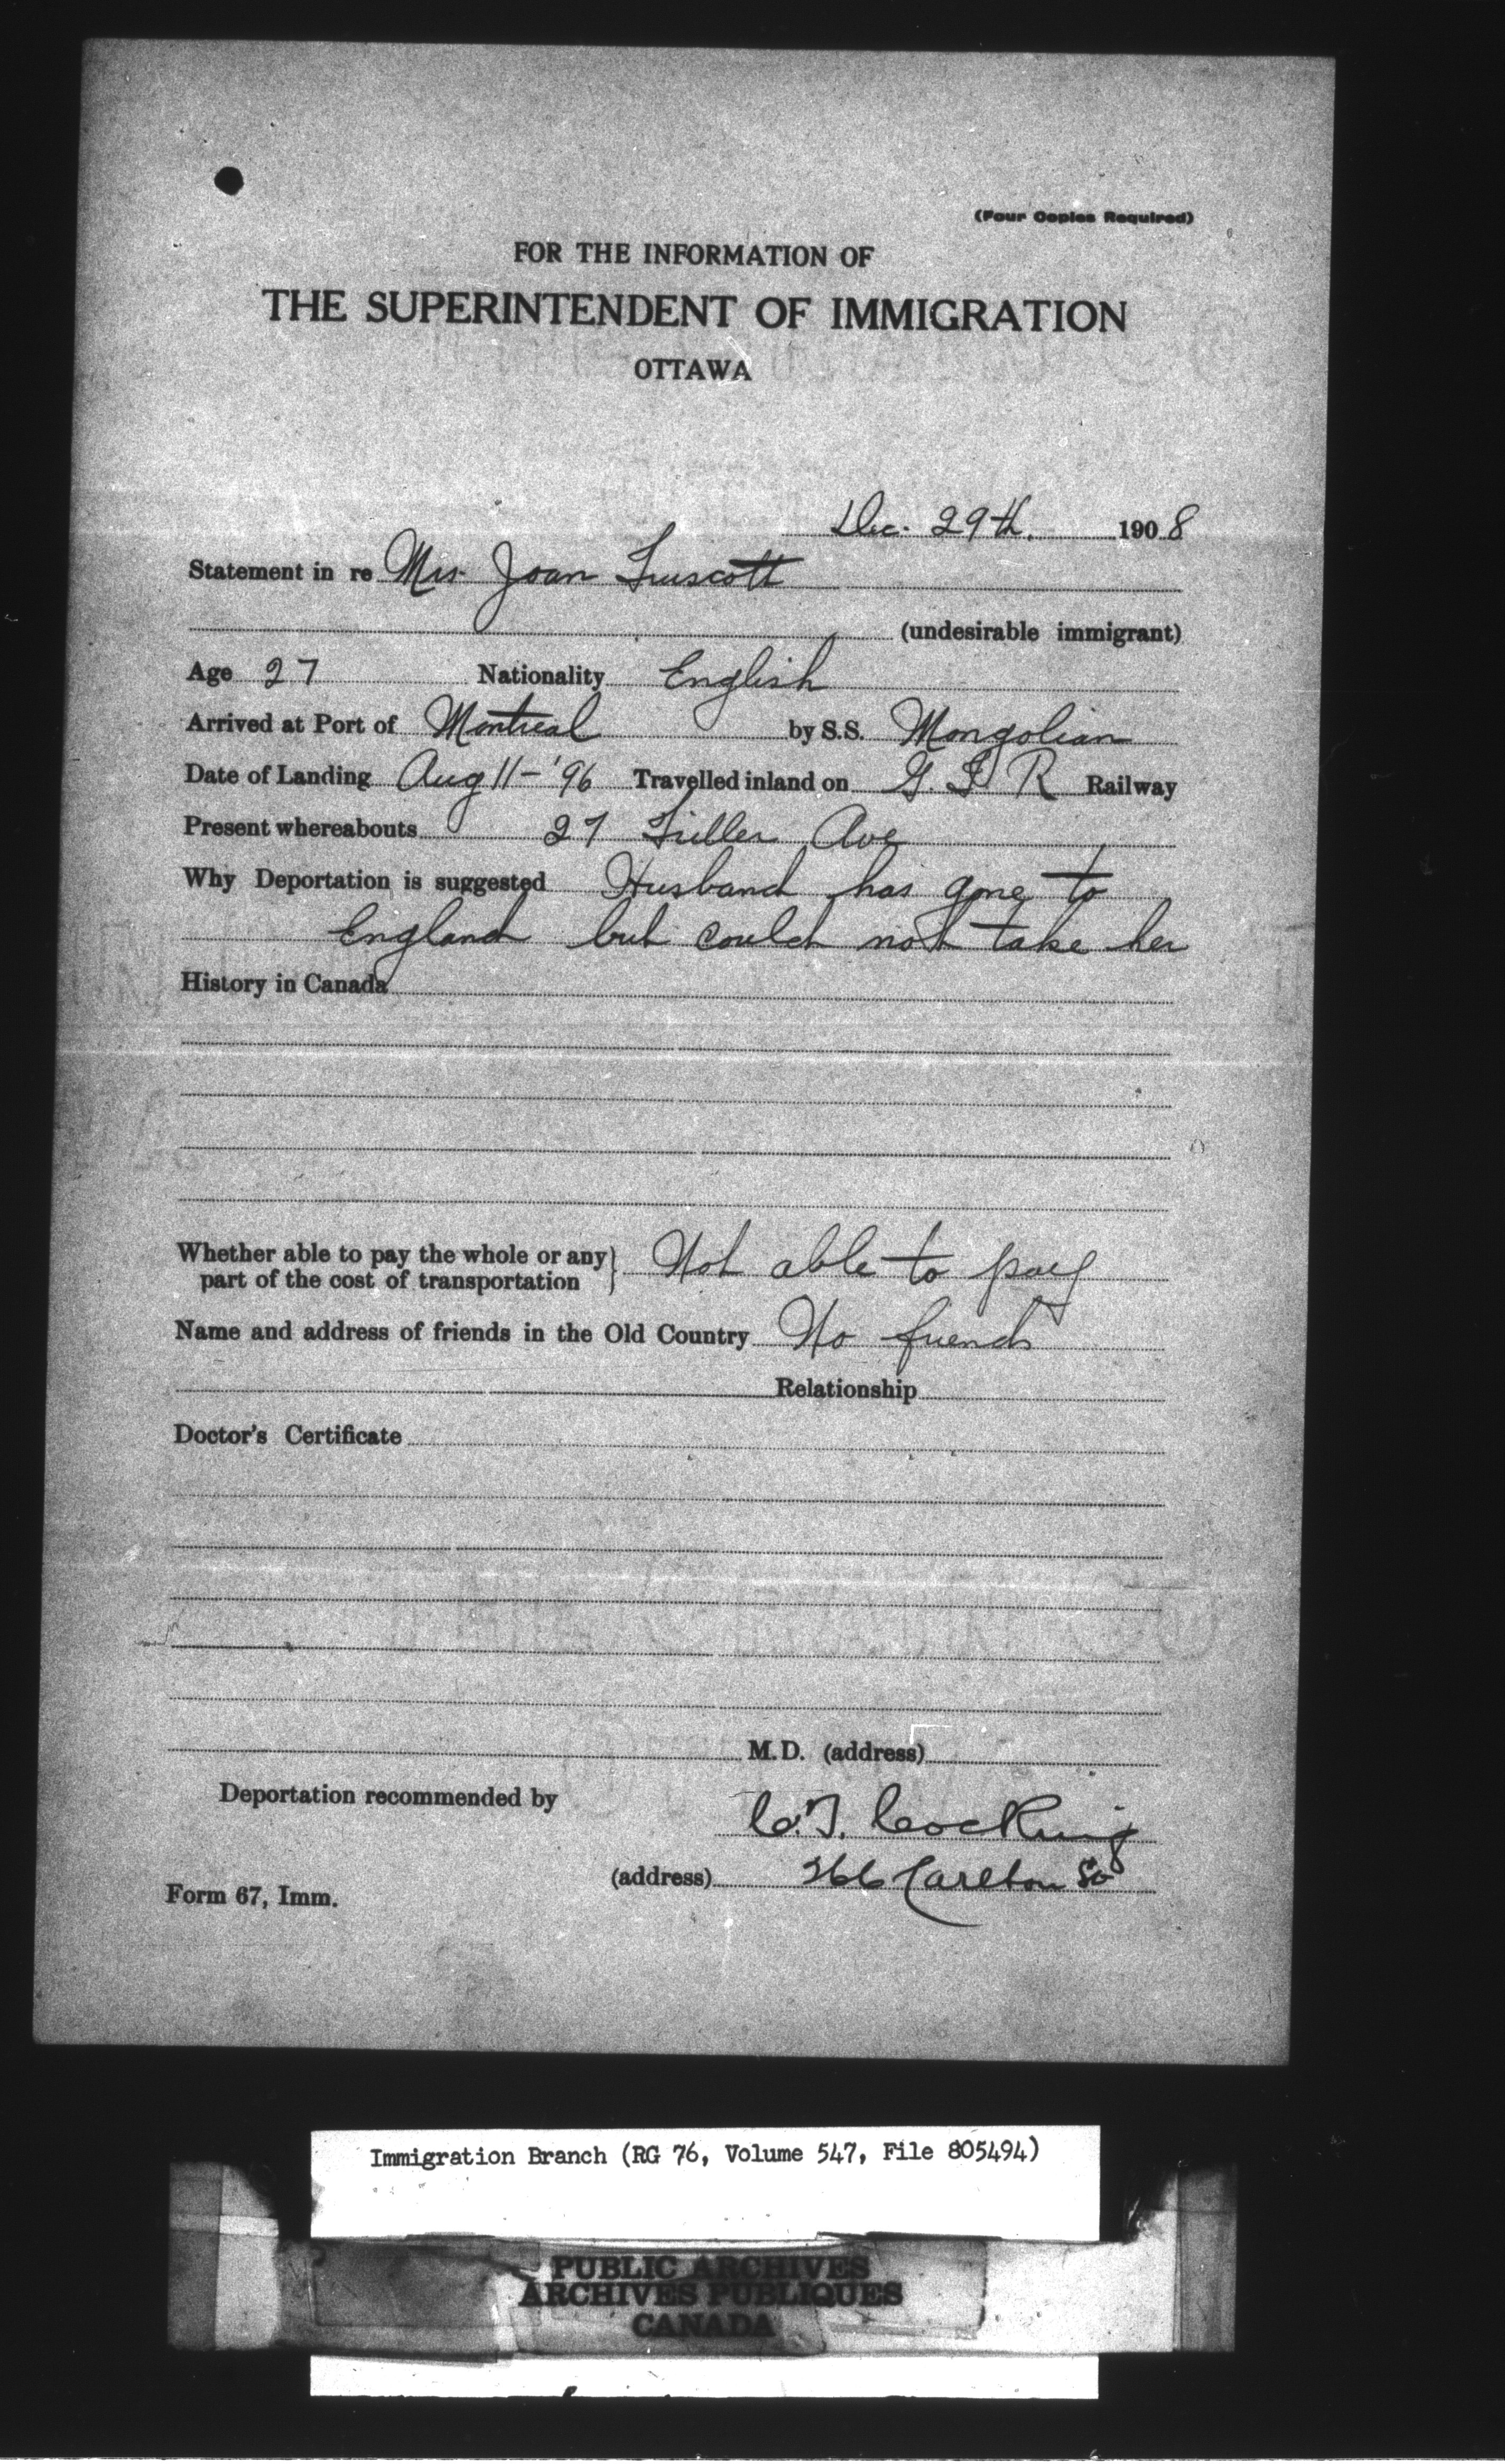 (Four Copies Required)
FOR THE INFORMATION OF
THE SUPERINTENDENT OF IMMIGRATION
OTTAWA
Dec. 29th. 1908
Statement in re Mrs. Joan Truscott
(undesirable immigrant)
Age 27 Nationality English
Arrived at Port of Montreal by S.S. Mongolian
Date of Landing Aug 11 - '96 Travelled inland on G. T R Railway
Present whereabouts 27 Fuller Ave
Why Deportation is suggested Husband has gone to
England but could not take her
History in Canada
Whether able to pay the whole or any }
part of the cost of transportation Not able to pay
Name and address of friends in the Old Country No friends
Relationship
Doctor's Certificate
M.D. (address)
Deportation recommended by
C.T. Cocking
(address) 266 Carlton St
Form 67, Imm.
Immigration Branch (RG 76, Volume 547, File 805494)
PUBLIC ARCHIVES
ARCHIVES PUBLIQUES
CANADA